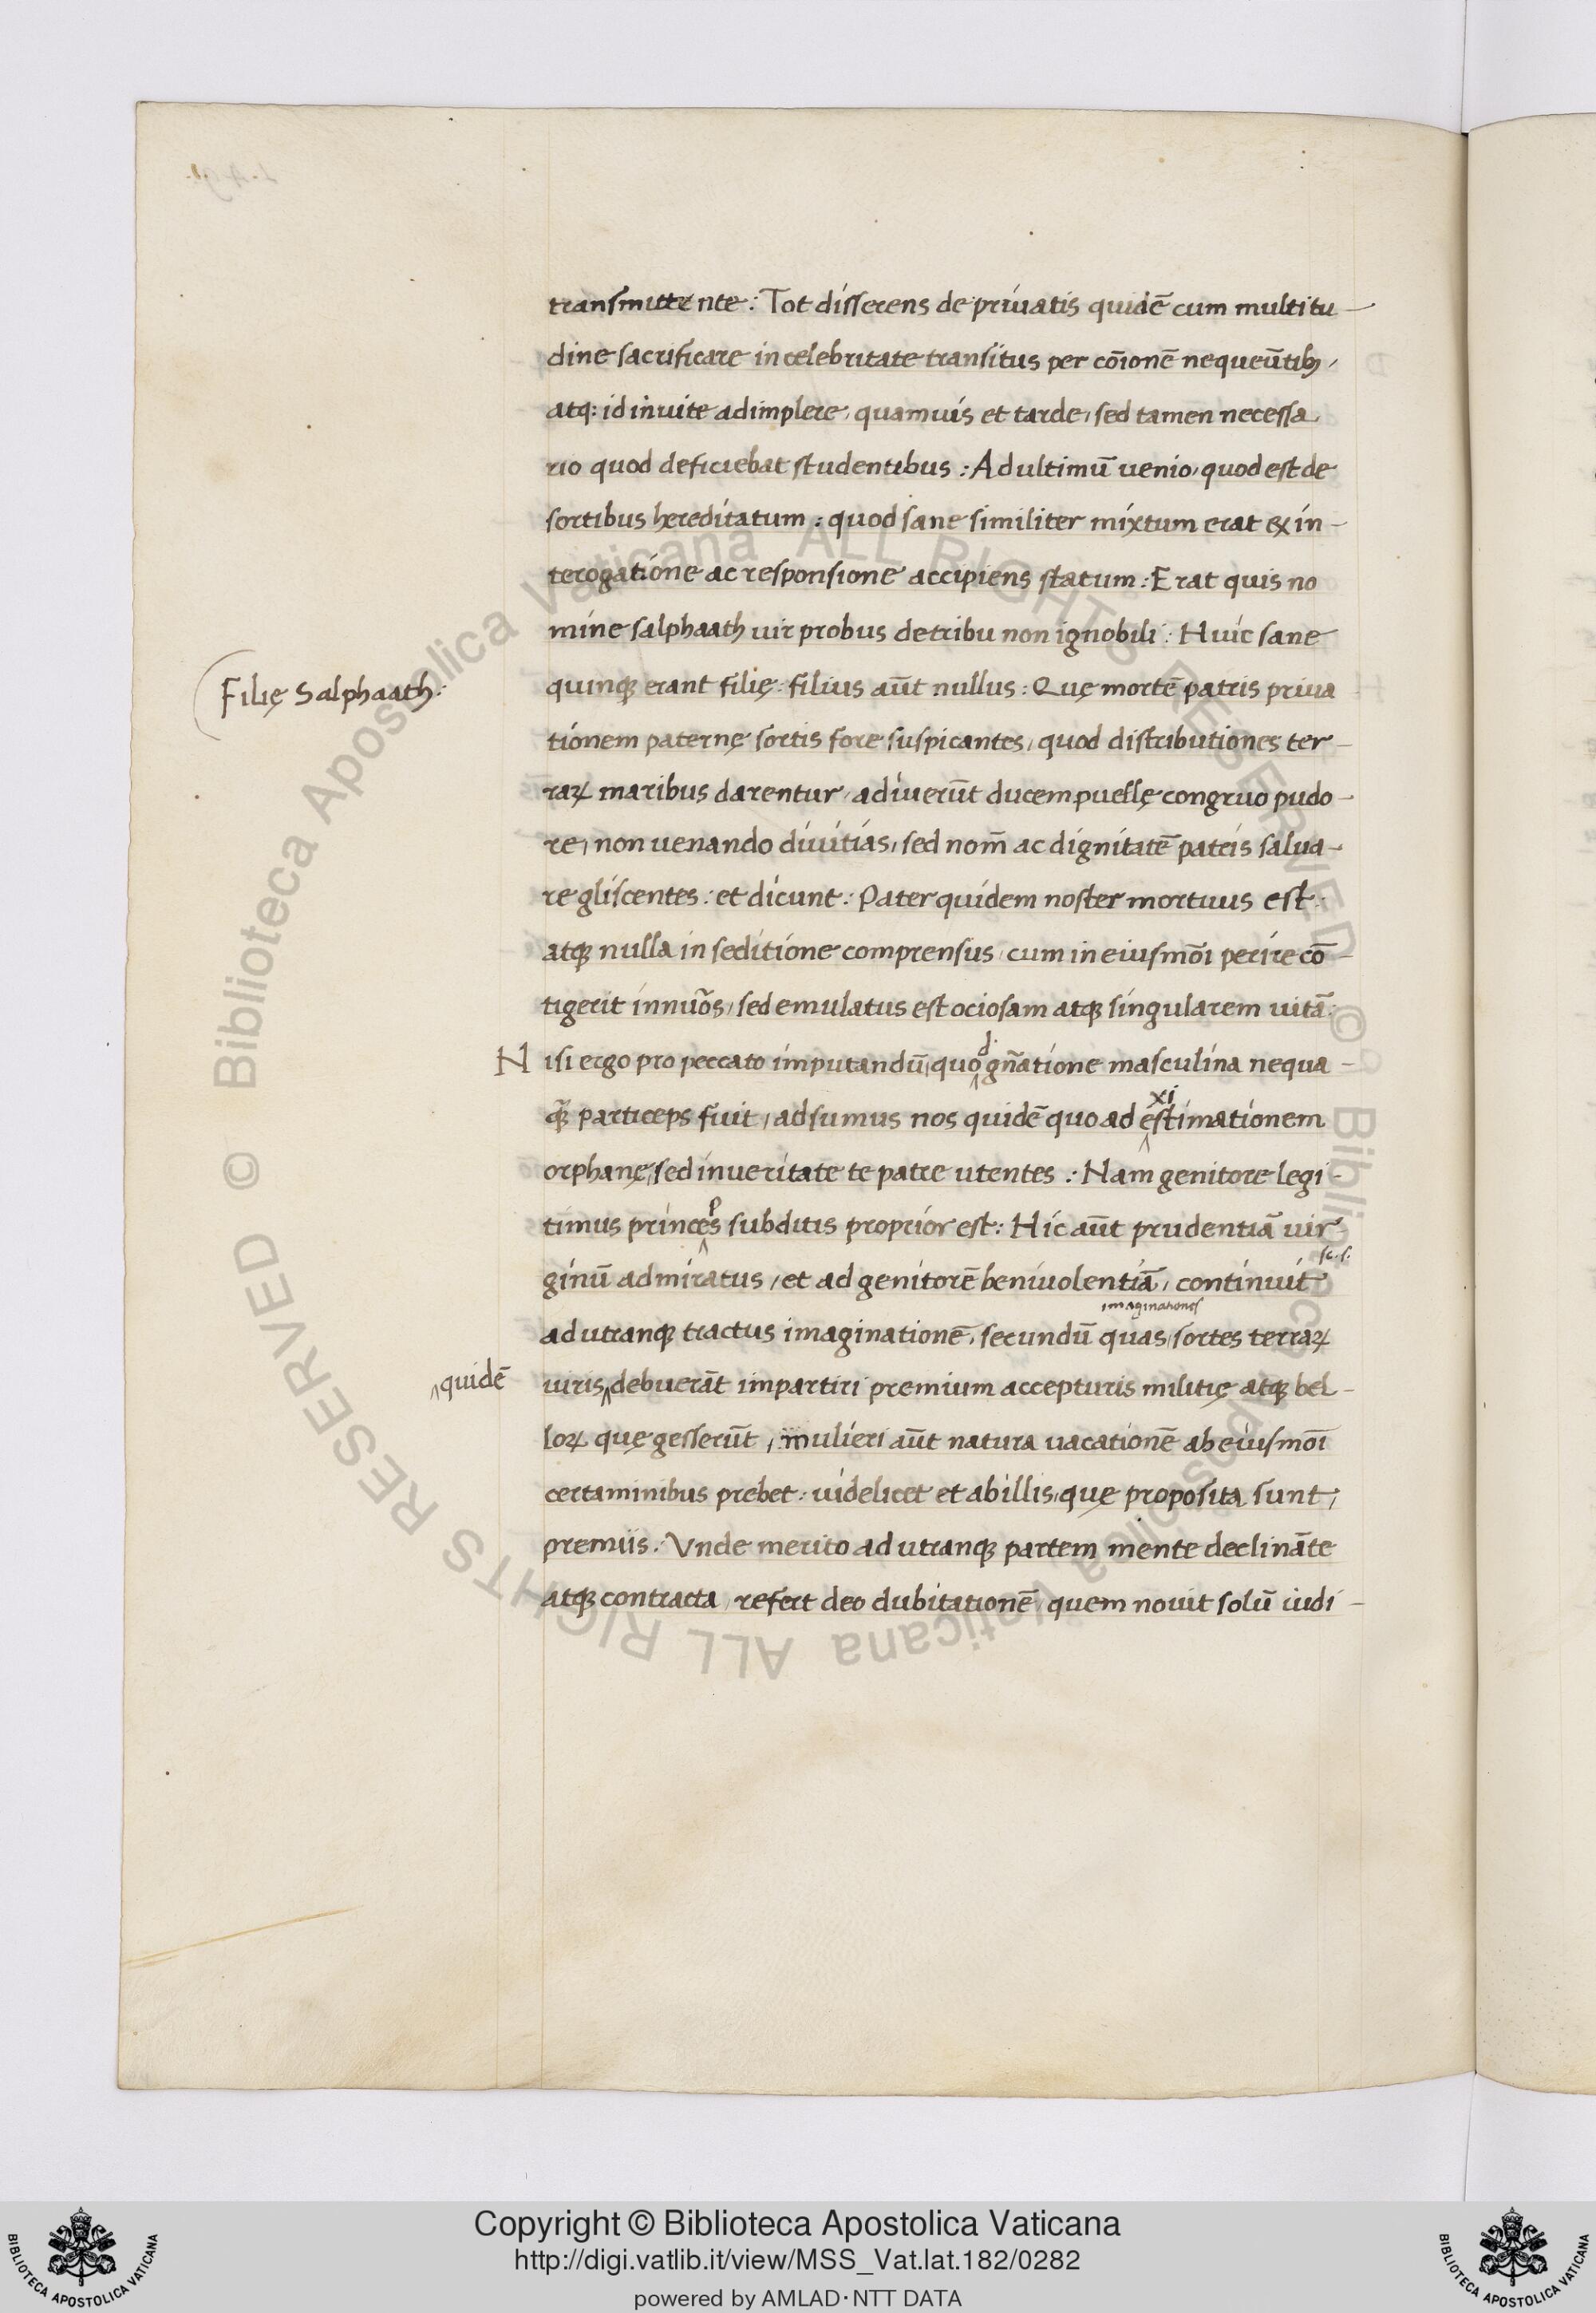 transmittente: Tot disserens de priuatis quidē cum multitu-
dine sacrificare in celebritate transitus per cōionē nequeūtibꝫ,
atq: id inuite adimplere, quamuis et tarde, sed tamen necessa
rio quod deficiebat studentibus: Ad ultimū uenio, quod est de
sortibus hereditatum: quod sane similiter mixtum erat ex in-
terogatione ac responsione accipiens statum: Erat quis no
mine salphaath uir probus de tribu non ignobili: Huic sane
Filię Salphaath:
quinqꝫ erant filię: filius aūt nullus: Quę mortē patris priua
tionem paternę sortis fore suspicantes, quod distributiones ter-
raꝝ maribus darentur, adiuerūt ducem puellę congruo pudo-
re, non uenando diuitias, sed nom̄ ac dignitatē patris salua-
re gliscentes: et dicunt: Pater quidem noster mortuus est:
atqꝫ nulla in seditione comprensus, cum in eiusmōi perire cō-
tigerit innuōs, sed emulatus est ociosam atqꝫ singularem uitā:
Nisi ergo pro peccato imputandū, quo^d gn̄atione masculina nequa-
qꝫ̄ particeps fuit, adsumus nos quidē quo ad e^xistimationem
orphanę, sed in ueritate te patre utentes: Nam genitore legi-
timus prince^ps subditis proprior est: Hic aūt prudentiā uir-
ginū admiratus, et ad genitorē beniuolentiā, continuit sc.s.
imaginationes
ad utranqꝫ tractus imaginationē, secundū quas, sortes terraꝝ
^quidē
uiris^debuerāt impartiri premium accepturis militię atqꝫ bel-
loꝝ que gesserūt, mulieri aūt natura uacationē ab eiusmōi
certaminibus prebet: uidelicet et ab illis, quę proposita sunt,
premiis: Vnde merito ad utranqꝫ partem mente declināte
atqꝫ contracta, refert deo dubitationē, quem nouit solū iudi-
Copyright © Biblioteca Apostolica Vaticana
http://digi.vatlib.it/view/MSS_Vat.lat.182/0282
powered by AMLAD·NTT DATA
BIBLIOTECA APOSTOLICA VATICANA
BIBLIOTECA APOSTOLICA VATICANA
© Biblioteca Apostolica Vaticana ALL RIGHTS RESERVED
© Biblioteca Apostolica Vaticana ALL RIGHTS RESERVED